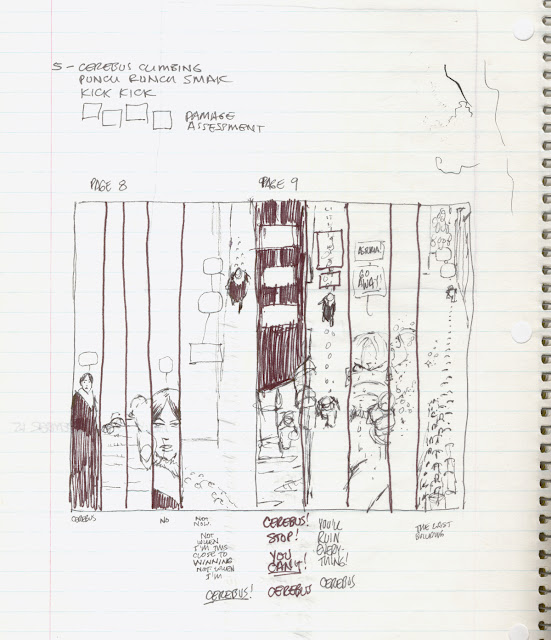 5 - CEREBUS CLIMBING
PUNCH PUNCH SMAK
KICK KICK
DAMAGE
ASSESSMENT
PAGE 8
PAGE 9
ASTORIA!
GO
AWAY!
CEREBUS
NO
NOT
NOW.
NOT
WHEN
I'M THIS
CLOSE TO
WINNING
NOT WHEN
I'M
CEREBUS!
CEREBUS!
STOP!
YOU
CAN'T!
CEREBUS
YOU'LL
RUIN
EVERY-
THING!
CEREBUS
THE LAST
BUILDING